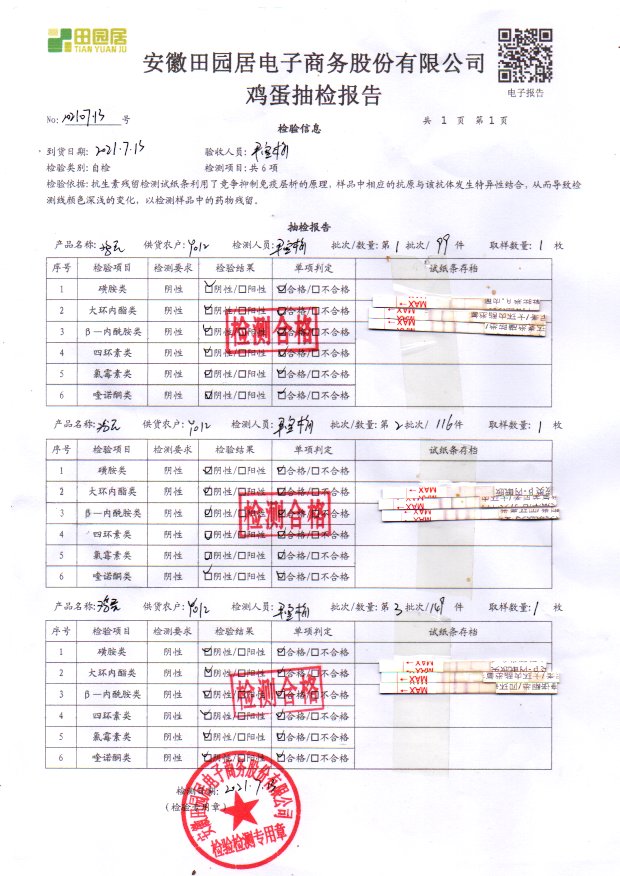 田园居
TIAN YUAN JU
安徽田园居电子商务股份有限公司
鸡蛋抽检报告
电子报告
No: 20210713 号
共 1 页 第 1 页
检验信息
到货日期: 2021.7.13 验收人员:
检验类别: 自检 检测项目: 共 6 项
检验依据: 抗生素残留检测试纸条利用了竞争抑制免疫层析的原理, 样品中相应的抗原与该抗体发生特异性结合, 从而导致检
测线颜色深浅的变化, 以检测样品中的药物残留。
抽检报告
产品名称: 供货农户: 4012 检测人员: 批次/数量: 第 1 批次/ 99 件 取样数量: 1 枚
序号 检验项目 检测要求 检验结果 单项判定 试纸条存档
1 磺胺类 阴性 ☑阴性/□阳性 ☑合格/□不合格
2 大环内酯类 阴性 ☑阴性/□阳性 ☑合格/□不合格
3 β—内酰胺类 阴性 ☑阴性/□阳性 ☑合格/□不合格
4 四环素类 阴性 ☑阴性/□阳性 ☑合格/□不合格
5 氯霉素类 阴性 ☑阴性/□阳性 ☑合格/□不合格
6 喹诺酮类 阴性 ☑阴性/□阳性 ☑合格/□不合格
检测合格
MAX
MAX
MAX
产品名称: 供货农户: 4012 检测人员: 批次/数量: 第 2 批次/ 116 件 取样数量: 1 枚
序号 检验项目 检测要求 检验结果 单项判定 试纸条存档
1 磺胺类 阴性 ☑阴性/□阳性 ☑合格/□不合格
2 大环内酯类 阴性 ☑阴性/□阳性 ☑合格/□不合格
3 β—内酰胺类 阴性 ☑阴性/□阳性 ☑合格/□不合格
4 四环素类 阴性 ☑阴性/□阳性 ☑合格/□不合格
5 氯霉素类 阴性 ☑阴性/□阳性 ☑合格/□不合格
6 喹诺酮类 阴性 ☑阴性/□阳性 ☑合格/□不合格
检测合格
MAX
MAX
MAX
产品名称: 供货农户: 4012 检测人员: 批次/数量: 第 3 批次/ 149 件 取样数量: 1 枚
序号 检验项目 检测要求 检验结果 单项判定 试纸条存档
1 磺胺类 阴性 ☑阴性/□阳性 ☑合格/□不合格
2 大环内酯类 阴性 ☑阴性/□阳性 ☑合格/□不合格
3 β—内酰胺类 阴性 ☑阴性/□阳性 ☑合格/□不合格
4 四环素类 阴性 ☑阴性/□阳性 ☑合格/□不合格
5 氯霉素类 阴性 ☑阴性/□阳性 ☑合格/□不合格
6 喹诺酮类 阴性 ☑阴性/□阳性 ☑合格/□不合格
检测合格
MAX
MAX
MAX
检测日期: 2021.7.13
(检验专用章)
安徽田园居电子商务股份有限公司
检验检测专用章